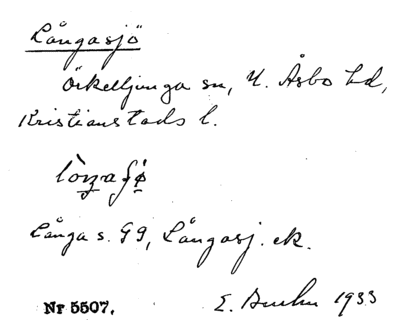 Långasjö
Örkelljunga sn, N. Åsbo hd,
Kristianstads l.
Långa s. G9, Långasj. ek.
E. 1933
Nr 5507.